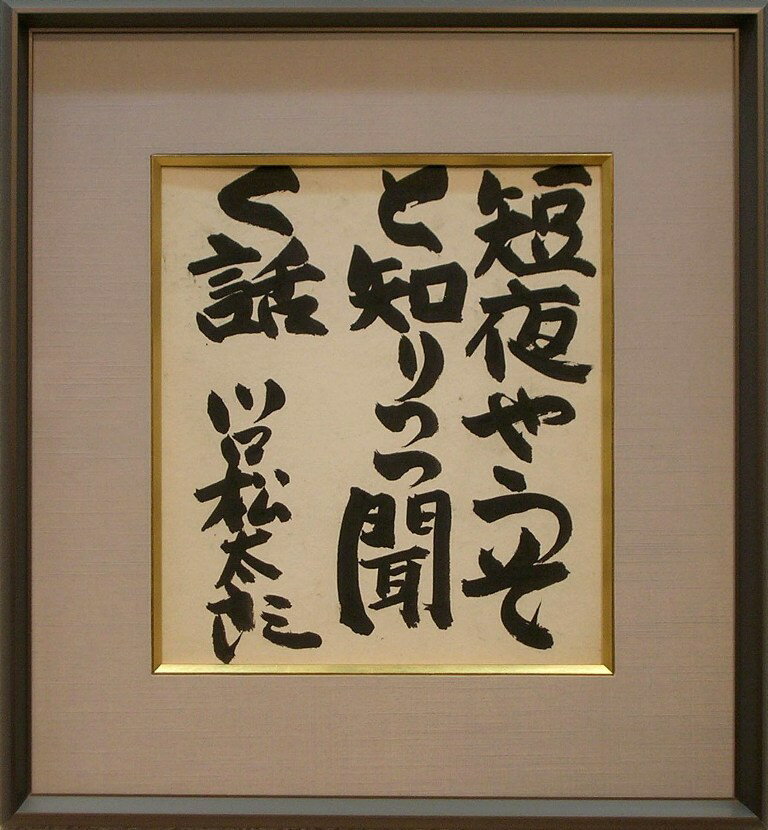 短夜やうそ
と知りつゝ聞
く話 川口松太郎